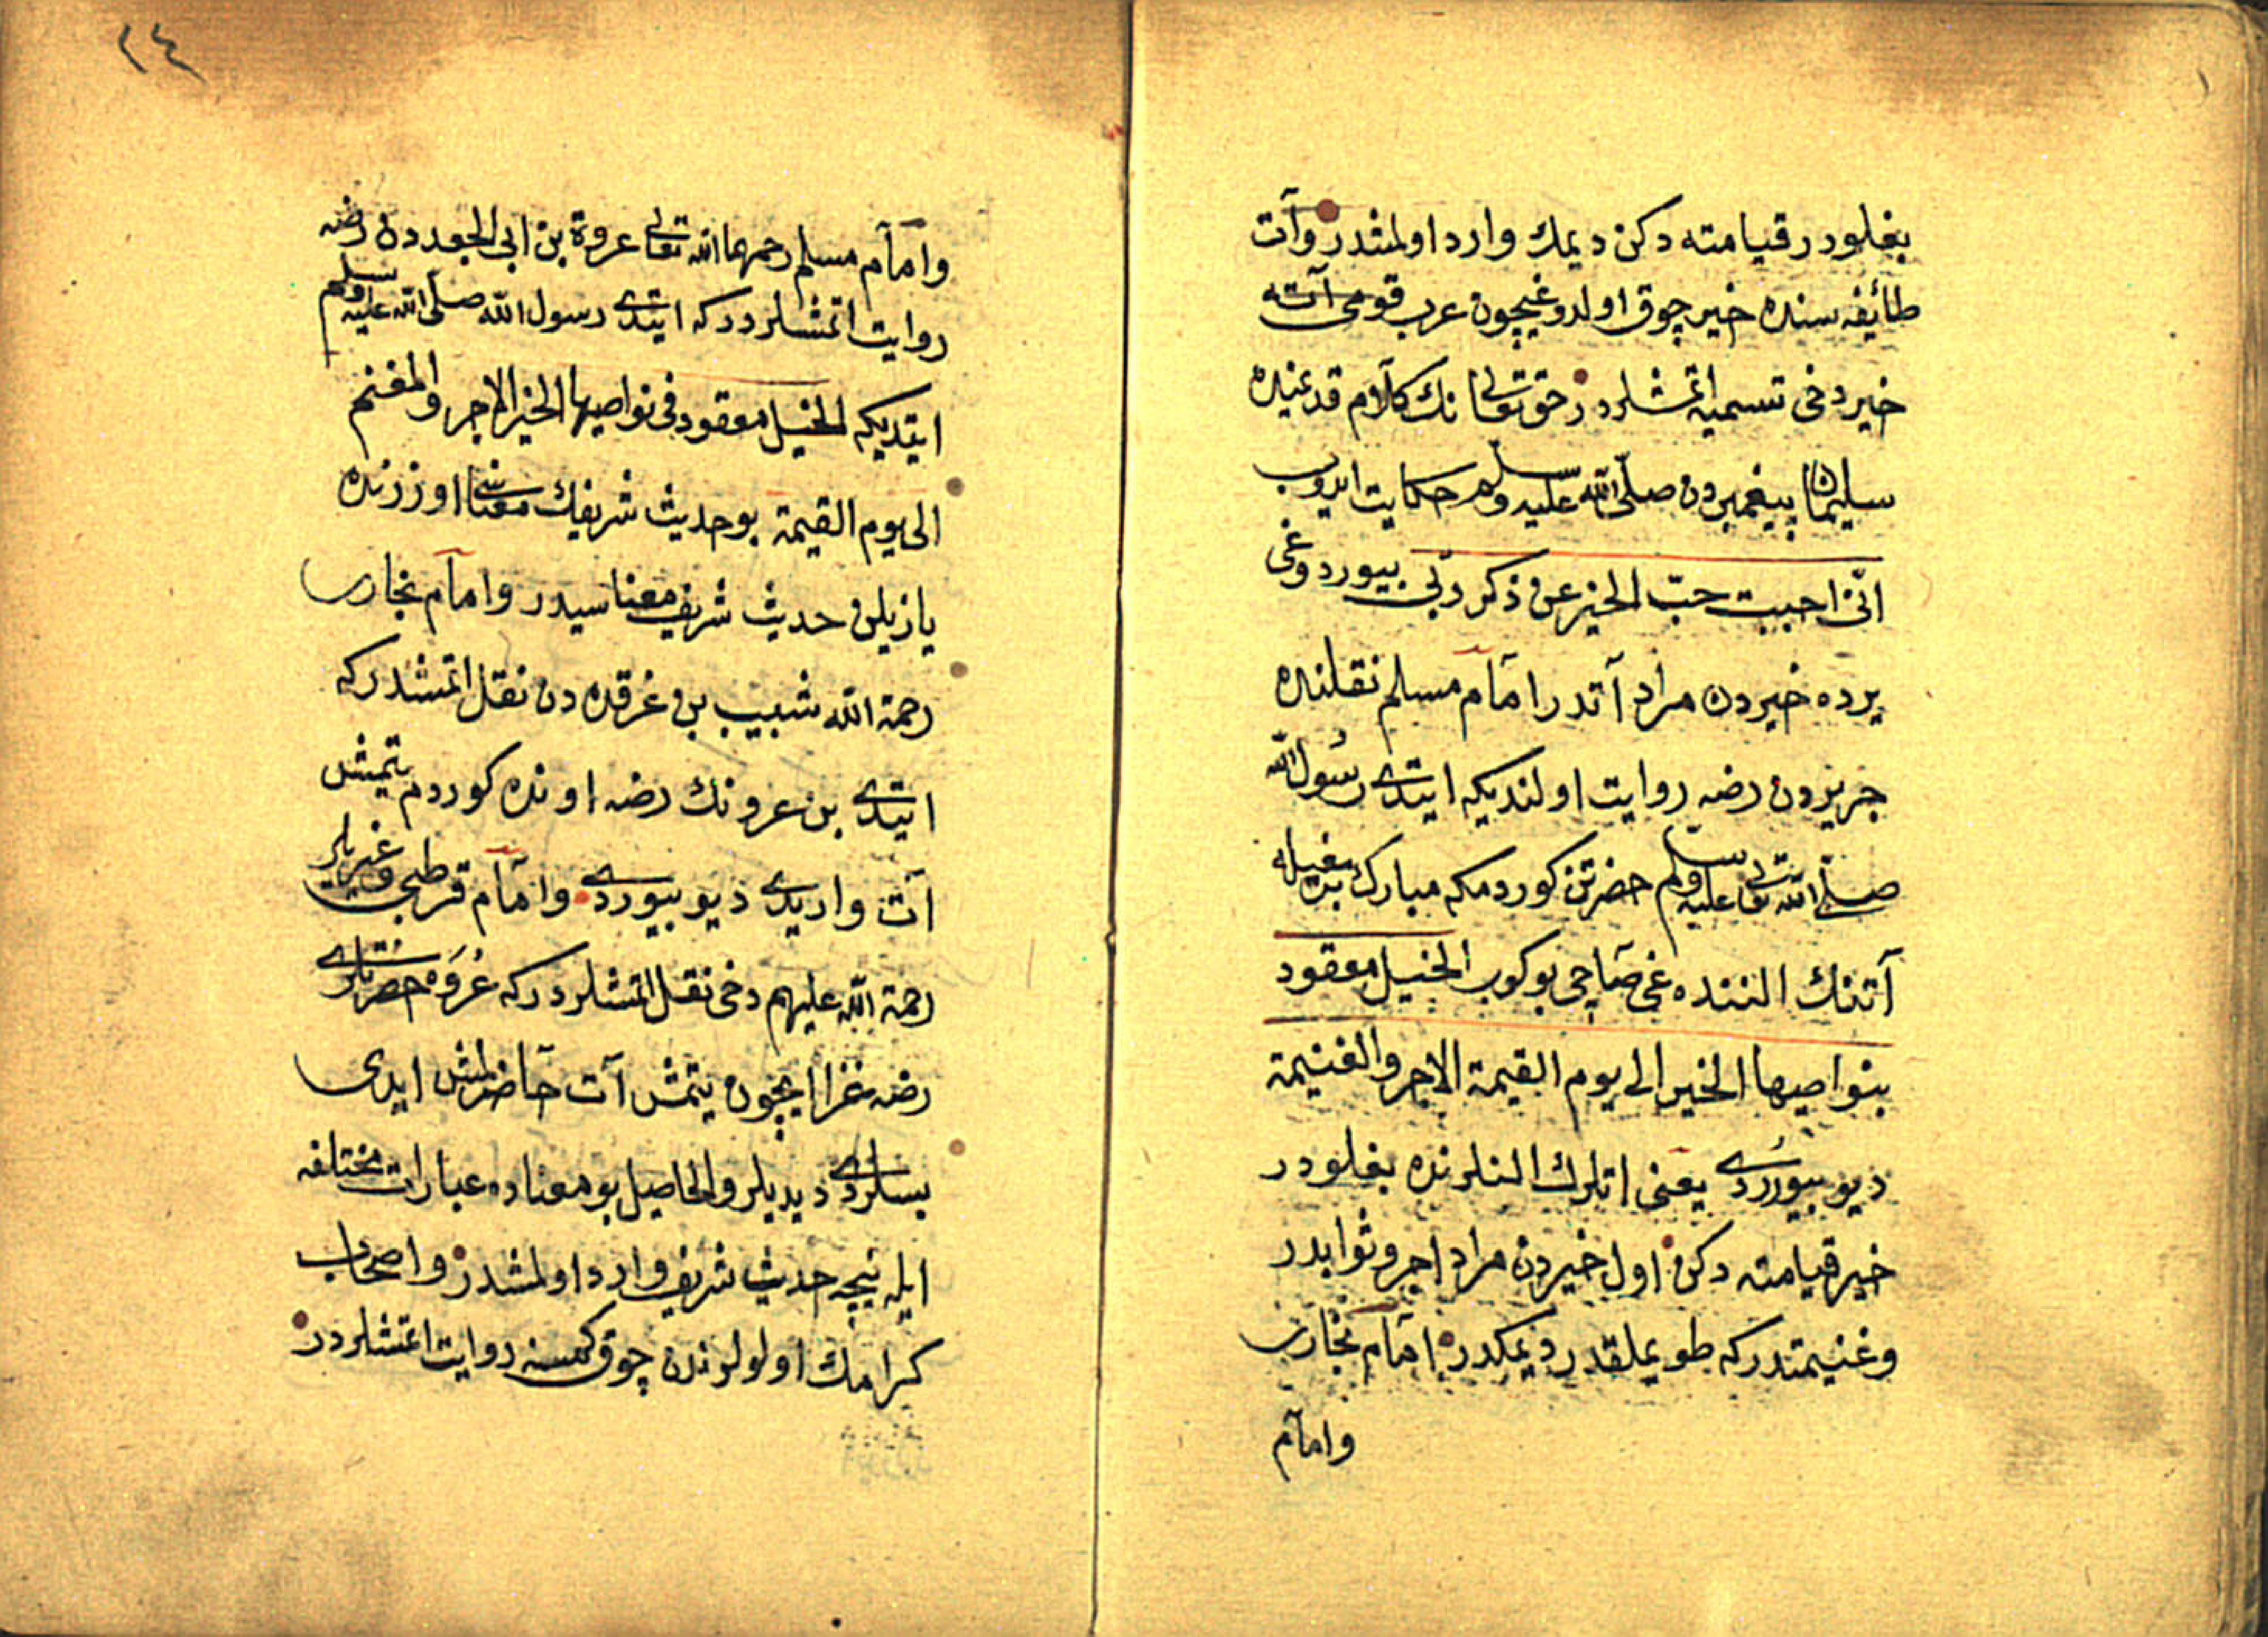 بغلودر قيامته دكن ديمك وارد اولمشدر وآت
طائفه سنده خير چوق اولدوغيچون عرب قومى آته
خير دخى تسميه اتمشلردر حق تعالى نك كلام قديمنده
سليمان پيغمبردن صلى الله عليه وسلم حكايت ايدوب
انى احببت حب الخير عن ذكر ربى بيوردوغى
يرده خيردن مراد آتدر امام مسلم نقلنده
جريردن رضه روايت اولنديكه ايتدى رسول الله
صلى الله تعالى عليه وسلم حضرتن كوردمكم مبارك برمغيله
آتنك النده غى صاچى بوكوب الخيل معقود
بنواصيها الخير الى يوم القيمة الاجر والغنيمة
ديو بيوردى يعنى اتلرك النلرنده بغلودر
خير قيامته دكن اول خيردن مراد اجر وثوابدر
وغنيمتدركه طويملقدر ديمكدر امام بخارى
وامام
٢٤
وامام مسلم رحمهما الله تعالى عروة بن ابى الجعددن رضه
روايت اتمشلردركه ايتدى رسول الله صلى الله عليه وسلم
ايتديكه الخيل معقود فى نواصيها الخير الاجر والمغنم
الى يوم القيمة بو حديث شريفك معناسى اوزرنده
يازيلن حديث شريف معناسيدر وامام بخارى
رحمة الله شبيب بن غرقده دن نقل اتمشدركه
ايتدى بن عرونك رضه اونده كوردم يتمش
آت واريدى ديو بيوردى وامام قرطبى وغيريلر
رحمة الله عليهم دخى نقل اتمشلردركه عروه حضرتلرى
رضه غزا ايچون يتمش آت حاضرلمش ايدى
بسلردى ديديلر والحاصل بو معناده عبارات مختلفه
ايله نيچه حديث شريف وارد اولمشدر واصحاب
كرامك اولولرندن چوق كمسنه روايت اتمشلردر